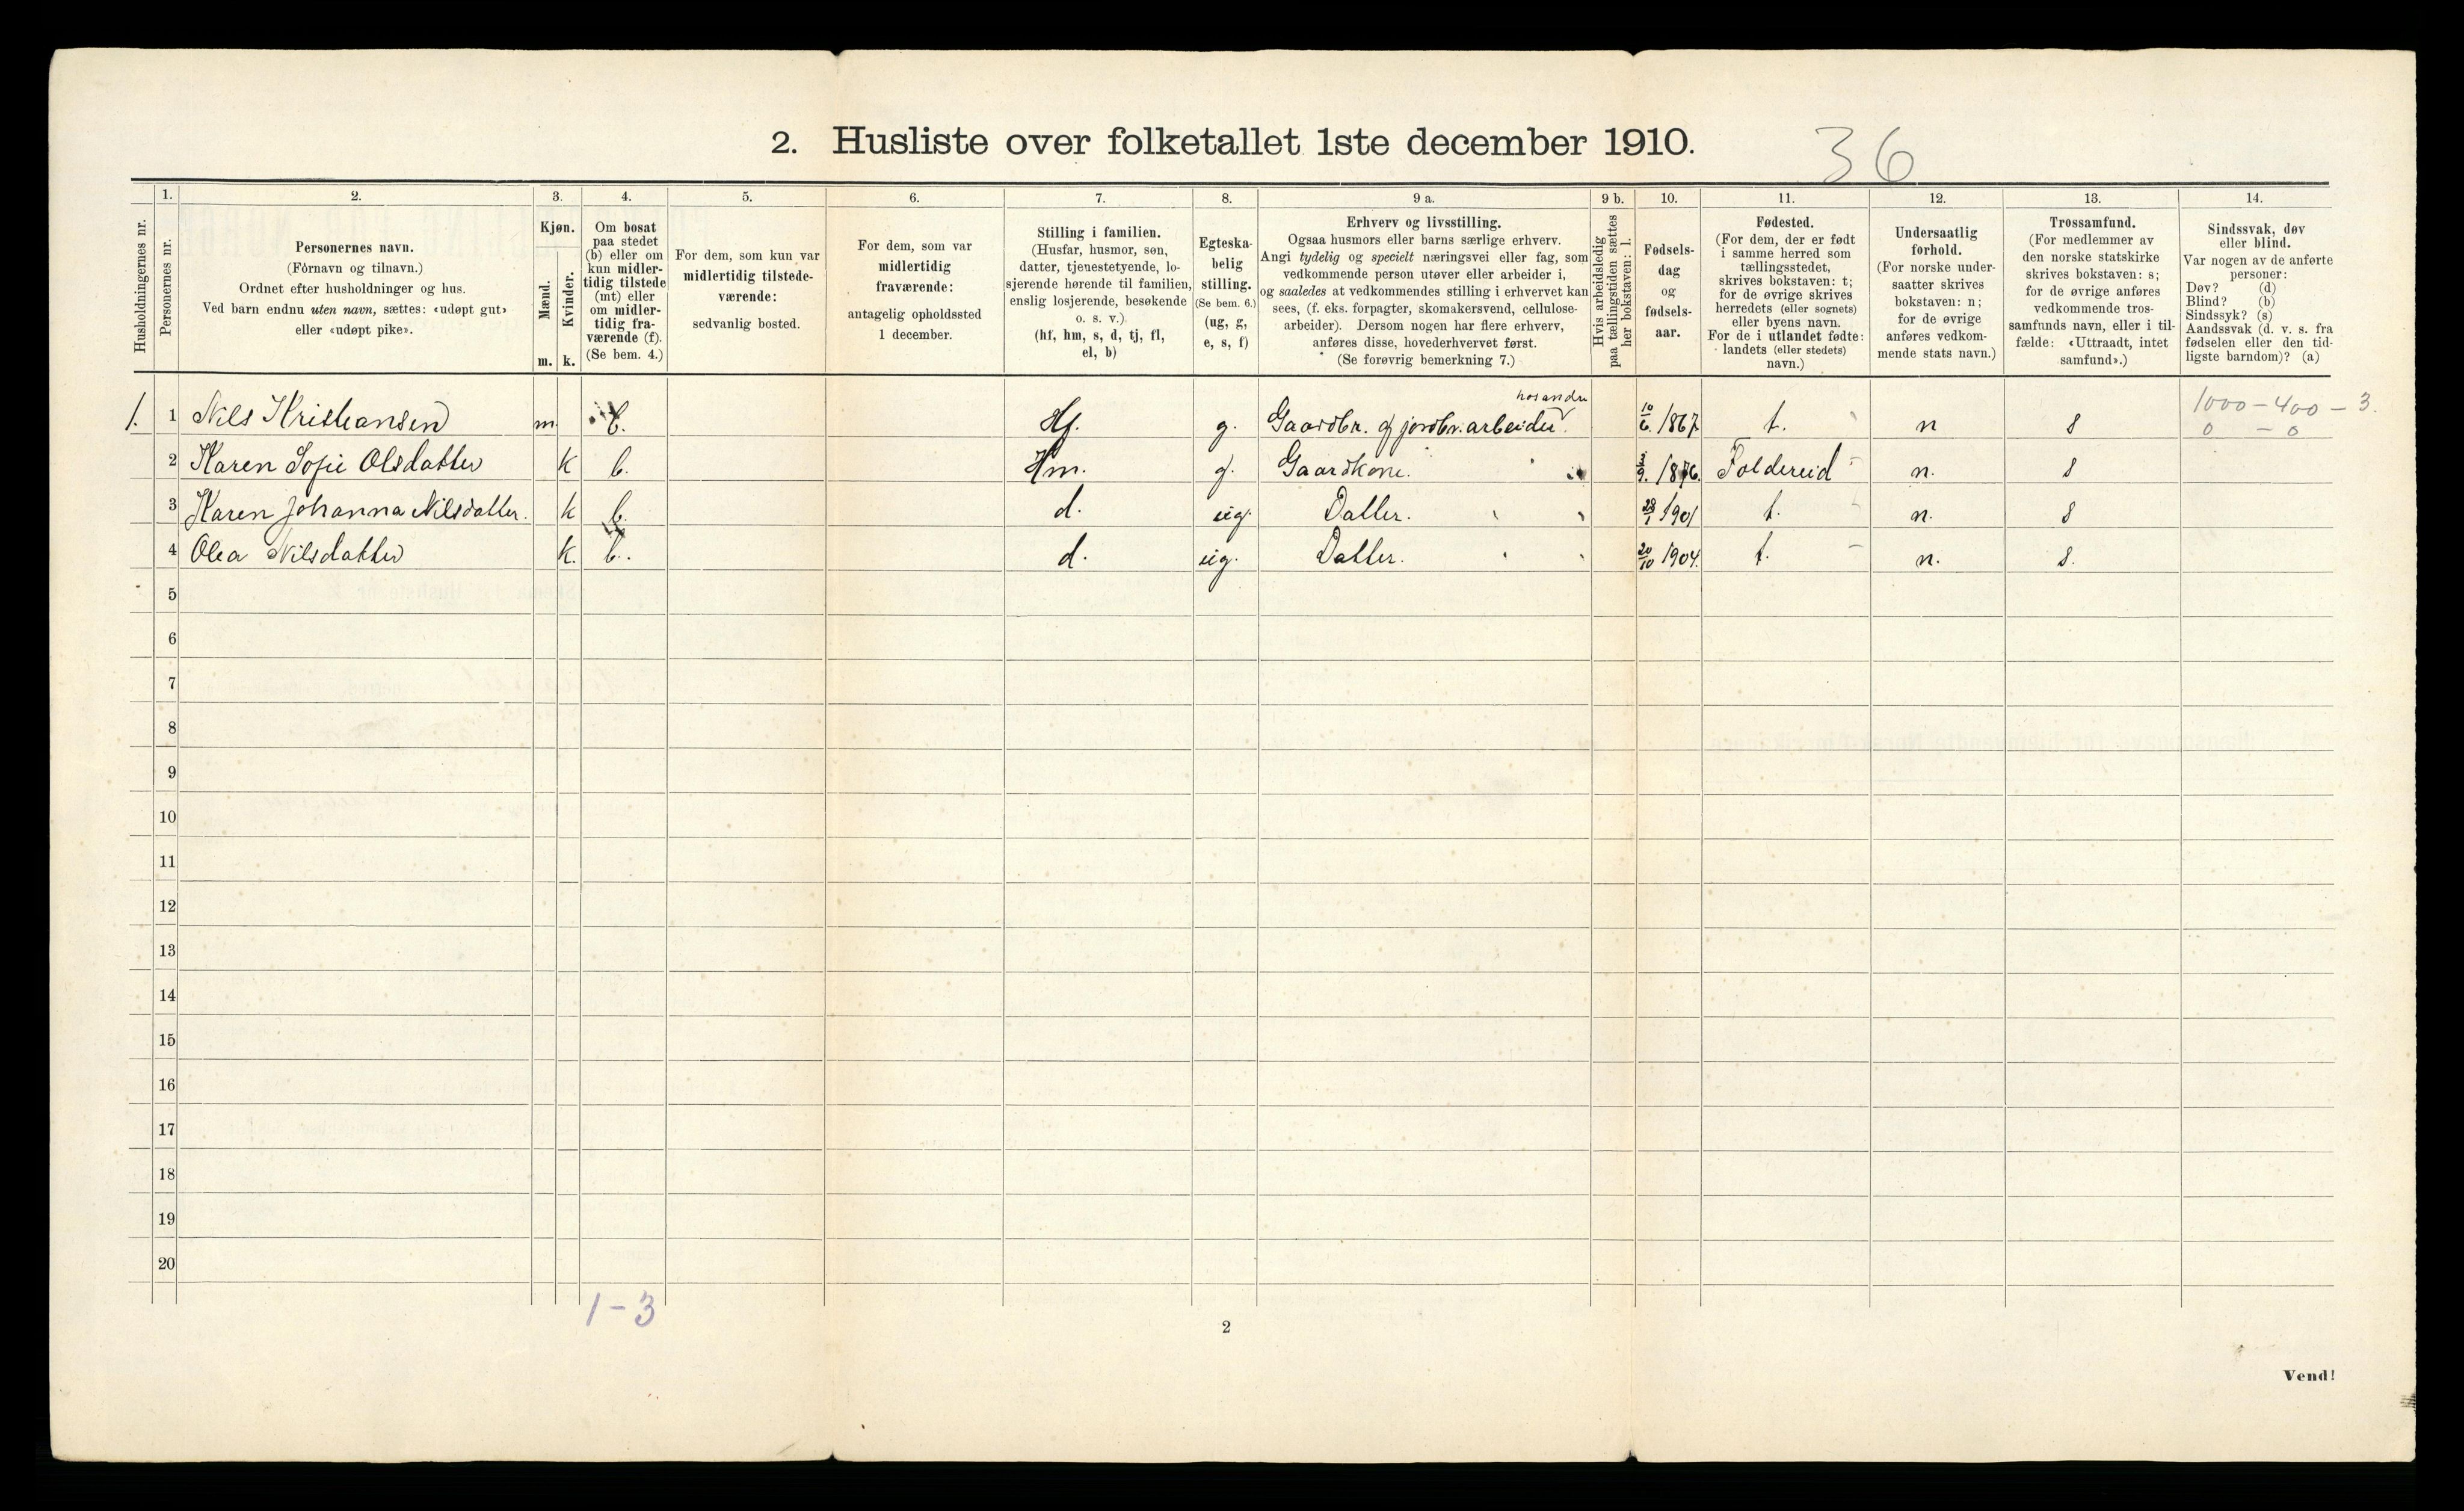 2. Husliste over folketallet 1ste december 1910.
36
Husholdningernes nr.
1.
Personernes nr.
2.
Personernes navn.
(Fornavn og tilnavn.)
Ordnet efter husholdninger og hus.
Ved barn endnu uten navn, sættes: «udøpt gut»
eller «udøpt pike».
3.
Kjøn.
Mænd.
Kvinder.
m.
k.
4.
Om bosat
paa stedet
(b) eller om
kun midler-
tidig tilstede
(mt) eller
om midler-
tidig fra-
værende (f).
(Se bem. 4.)
5.
For dem, som kun var
midlertidig tilstede-
værende:
sedvanlig bosted.
6.
For dem, som var
midlertidig
fraværende:
antagelig opholdssted
1 december.
7.
Stilling i familien.
(Husfar, husmor, søn,
datter, tjenestetyende, lo-
sjerende hørende til familien,
enslig losjerende, besøkende
o. s. v.)
(hf, hm, s, d, tj, fl,
el, b)
8.
Egteska-
belig
stilling.
(Se bem. 6.)
(ug, g,
e, s, f)
9 a.
Erhverv og livsstilling.
Ogsaa husmors eller barns særlige erhverv.
Angi tydelig og specielt næringsvei eller fag, som
vedkommende person utøver eller arbeider i,
og saaledes at vedkommendes stilling i erhvervet kan
sees, (f. eks. forpagter, skomakersvend, cellulose-
arbeider). Dersom nogen har flere erhverv,
anføres disse, hovederhvervet først.
(Se forøvrig bemerkning 7.)
9 b.
Hvis arbeidsledig
paa tællingstiden sættes
her bokstaven: l.
10.
Fødsels-
dag
og
fødsels-
aar.
11.
Fødested.
(For dem, der er født
i samme herred som
tællingsstedet,
skrives bokstaven: t;
for de øvrige skrives
herredets (eller sognets)
eller byens navn.
For de i utlandet fødte:
landets (eller stedets)
navn.)
12.
Undersaatlig
forhold.
(For norske under-
saatter skrives
bokstaven: n;
for de øvrige
anføres vedkom-
mende stats navn.)
13.
Trossamfund.
(For medlemmer av
den norske statskirke
skrives bokstaven: s;
for de øvrige anføres
vedkommende tros-
samfunds navn, eller i til-
fælde: «Uttraadt, intet
samfund».)
14.
Sindssvak, døv
eller blind.
Var nogen av de anførte
personer:
Døv? (d)
Blind? (b)
Sindssyk? (s)
Aandssvak (d. v. s. fra
fødselen eller den tid-
ligste barndom)? (a)
hos andre
1. 1 Nils Kristiansen m. b. Hf. g. Gaardbr. og jordbr. arbeider. 10/6. 1867 t. n s 1000 - 400 - 3.
0 - 0
2 Karen Sofie Olsdatter k b. Hm. g. Gaardkone. 3/9. 1876. Foldereid n. s
3 Karen Johanna Nilsdatter. k b. d. ug. Datter. 23/1 1901 t. n. s
4 Olea Nilsdatter k. b. d. ug. Datter. 20/10 1904. t. n. s.
5
6
7
8
9
10
11
12
13
14
15
16
17
18
19
20
1-3
2
Vend!